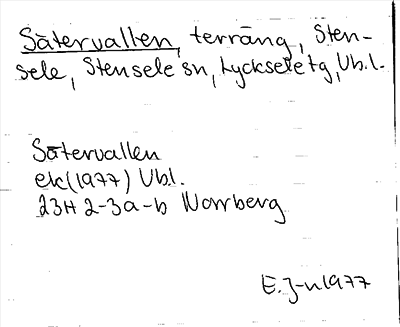 Sätervallen, terräng, Sten-
sele, Stensele sn, Lycksele tg, Vb.l.
Sätervallen
ek(1977) Vbl.
23H 2-3a-b Norrberg
E.J-n 1977